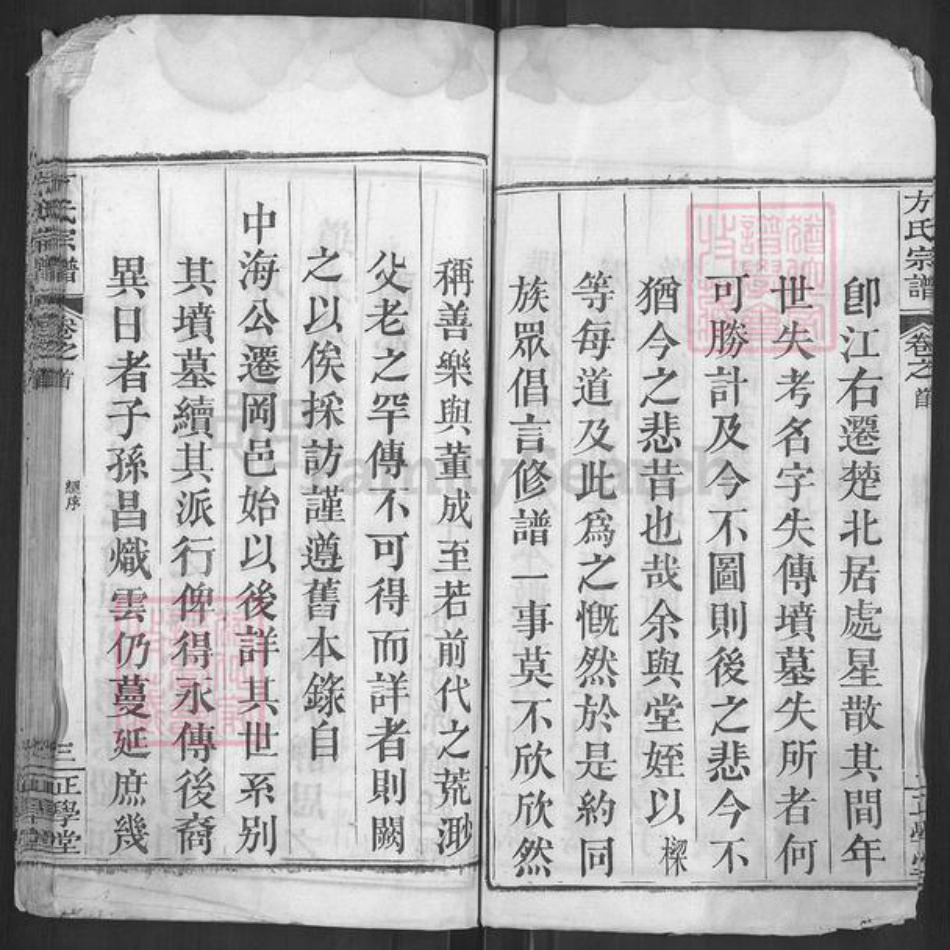 方氏宗譜
卷之首
卽江右遷楚北居處星散其間年
世失考名字失傳墳墓失所者何
可勝計及今不圖則後之悲今不
猶今之悲昔也哉余與堂姪以樑
等每道及此爲之慨然於是約同
族眾倡言修譜一事莫不欣欣然
稱善樂與董成至若前代之荒渺
父老之罕傳不可得而詳者則闕
之以俟採訪謹遵舊本錄自
中海公遷岡邑始以後詳其世系别
其墳墓續其派行俾得永傳後裔
異日者子孫昌熾雲仍蔓延庶幾
氏宗譜
卷之首
序
三 正學堂
FamilySearch